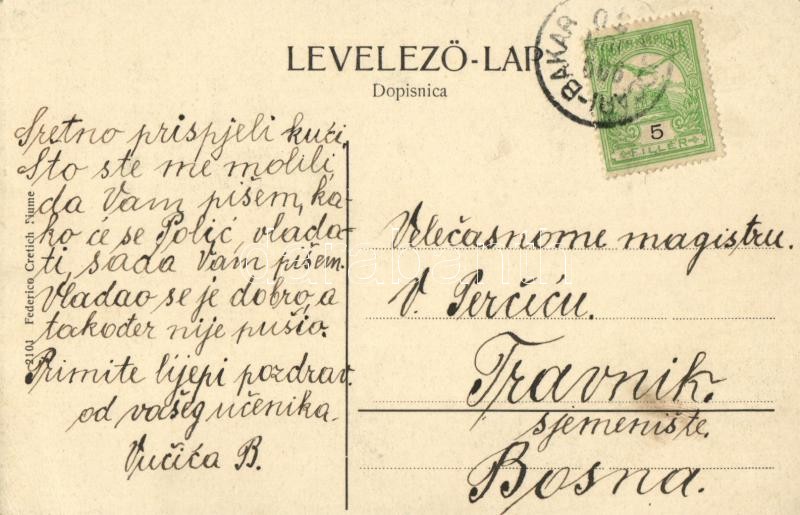 LEVELEZŐ-LAP
Dopisnica
BAKAR
MAGYAR KIR. POSTA
5
FILLÉR
Sretno prispjeli kući.
Što ste me molili,
da Vam pišem, ka-
ko će se Polić vlada-
ti, sada Vam pišem.
Vladao se je dobro, a
također nije pušio.
Primite lijepi pozdrav
od vašeg učenika
Vučića B.
2101 Federico Cretich Fiume
Velečasnome magistru.
V. Perčiću.
Travnik.
sjemenište.
Bosna.